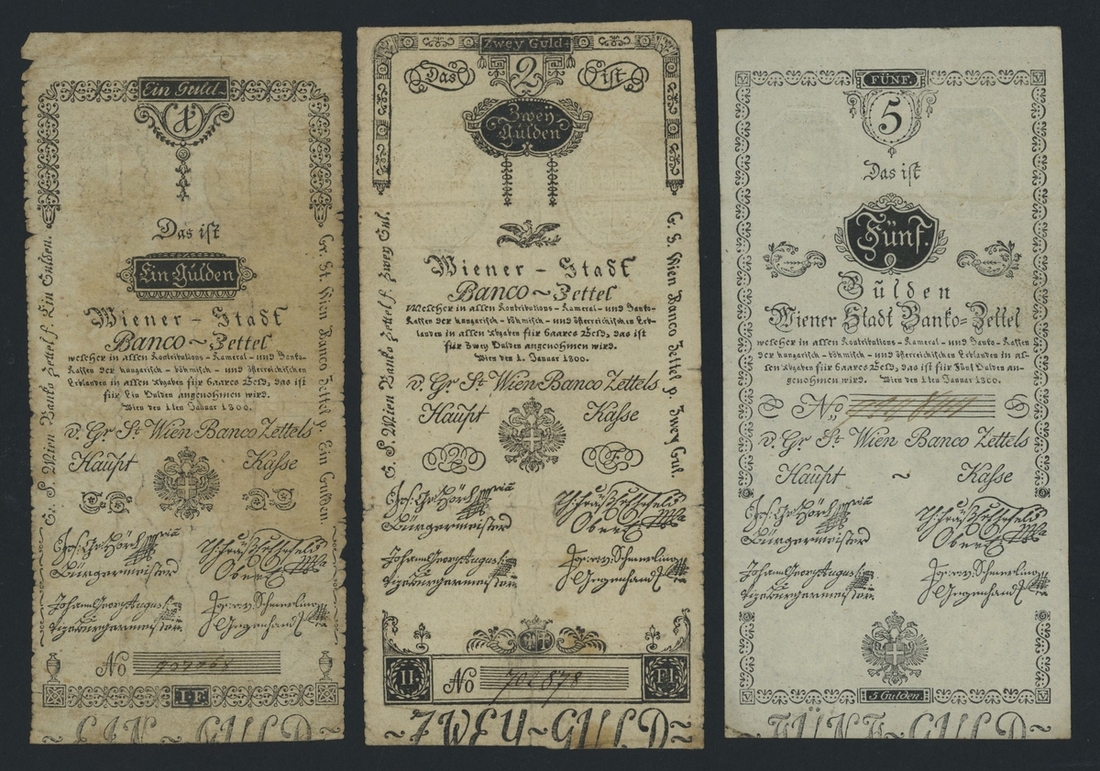 Ein Guld.
1
Das ist
Ein Gulden
Wiener - Stadt
Banco ~ Zettel
welcher in allen Kontributions - Kameral - und Banko-
Kassen der hungarisch - böhmisch - und österreichischen
Erblanden in allen Abgaben für baares Geld, das ist
für Ein Gulden angenommen wird.
Wien den 1ten Januar 1800.
v. Gr St Wien Banco Zettels
Haupt Kasse
Bürgermeister
Oberst
Vizebürgermeister
Gegenhand
No 907068
I. F.
EIN ~ GULD
G. S. Wien Banko Zettel f. Ein Gulden.
Gr. St. Wien Banco Zettel p. Ein Gulden
Zwey Guld.
Das 2 ist
Zwey
Gulden
Wiener - Stadt
Banco ~ Zettel
Welcher in allen Kontributions - Kameral - und Banko-
Kassen der hungarisch - böhmisch - und österreichischen Erb-
landen in allen Abgaben für baares Geld, das ist
für Zwey Gulden angenommen wird.
Wien den 1. Januar 1800.
v. Gr St Wien Banco Zettels
Haupt Kasse
Bürgermeister
Vizebürgermeister
Gegenhand
II. No 878 Fl
~ ZWEY ~ GULD ~
G. S. Wien Banko Zettel f. Zwey Gul.
G. S. Wien Banco Zettel p. Zwey Gul.
FÜNF
5
Das ist
Fünf
Gulden
Wiener Stadt Banko=Zettel
welcher in allen Kontributions - Kameral - und Banko-Kassen
der hungarisch - böhmisch - und österreichischen Erblanden in al-
len Abgaben für baares Geld, das ist Fünf Gulden an-
genommen wird. Wien den 1ten Januar 1800.
No
v. Gr St. Wien Banco Zettels
Haupt ~ Kasse
Bürgermeister
Vizebürgermeister
Gegenhand
5 Gulden.
FÜNF ~ GULD ~